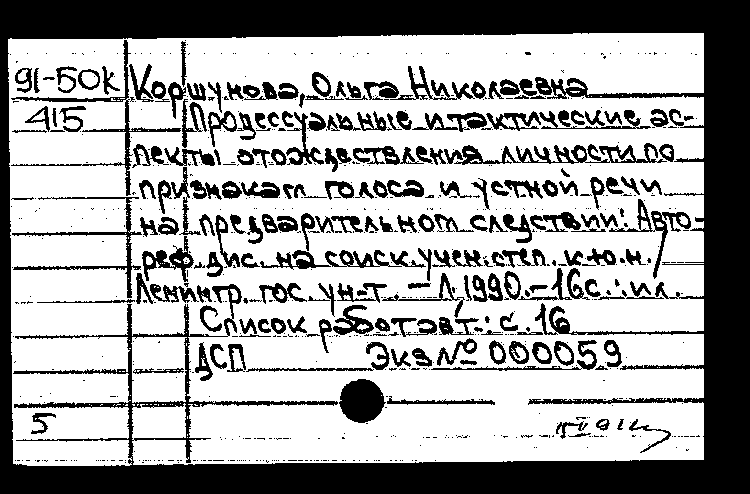 91-50к Коршунова, Ольга Николаевна
415 Процессуальные и тактические ас-
пекты отождествления личности по
признакам голоса и устной речи
на предварительном следствии: Авто-
реф. дис. на соиск. учен. степ. к.ю.н./
Ленингр. гос. ун-т. – Л., 1990. – 16с.: ил.
Список работ авт.: с. 16
ДСП Экз № 000059
5